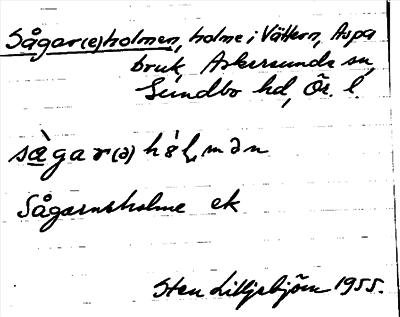 Sågar(e)holmen, holme i Vättern, Aspa
bruk, Askersunds sn,
Sundbo hd, Ör. l.
sågar(ə) hål,mən
Sågarnsholme ek
Sten Lilljebjörn 1955.